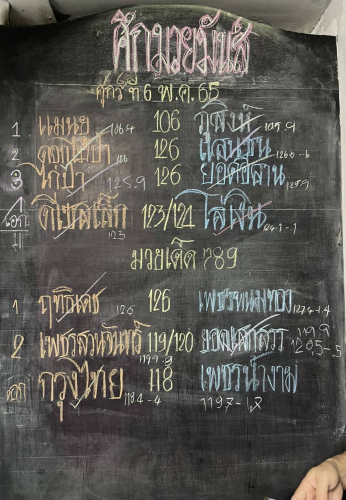 ศึกมวยมันส์
ศุกร์ ที่ 6 พ.ค. 65
1 แมนยู 106.4 106 ภูสิงห์ 105.9
2 ดอกไม้ป่า 126 126
3 ไก่ป่า 125.9 126 ยอดอีสาน 125.9
เอก ดีเซลเล็ก 123 123/121 ไล่เงิน
มวยเด็ด 789
1 ฤทธิเดช 126 126 เพชรพนมทอง 127.4-1.4
2 เพชรสวนจันทร์ 119.9 119/120 119.9
กรุงไทย 118.4-4 118 เพชรน้ำงาม